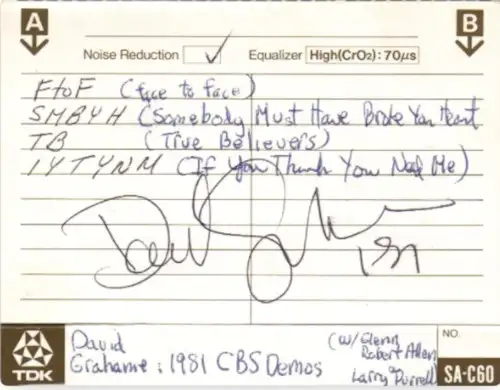 A B
Noise Reduction ✓ Equalizer High(CrO2): 70µs
F to F (face to face)
SMBYH (Somebody Must Have Broke Your Heart
TB (True Believers)
IYTYNM (If You Think You Need Me)
David
Grahame: 1981 CBS Demos
(w/ Glenn
Robert Allen
Larry Durrell)
TDK
NO.
SA-C60